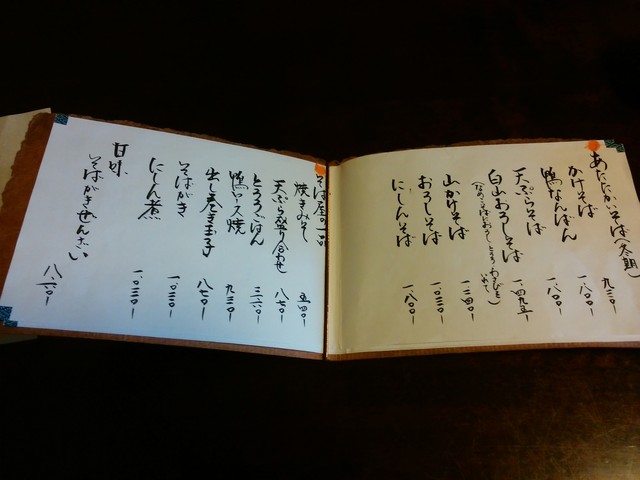 あたたかいそば(冬期)
かけそば 九三〇ー
鴨なんばん 一、八〇〇ー
天ぷらそば 一、八〇〇ー
白山おろしそば 一、四九五ー
(なめこ、そばおろし、とろろ、わさびを入れて)
山かけそば 一、二四〇ー
おろしそば 一、〇三〇ー
にしんそば 一、八〇〇ー
そば屋の一品
焼きみそ 五四〇ー
天ぷら盛り合わせ 八七〇ー
とろろごはん 三一〇ー
鴨ロース焼 九三〇ー
出し巻き玉子 八七〇ー
そばがき 一、〇三〇ー
にしん煮 一、〇三〇ー
甘味
そばがきぜんざい 八二〇ー